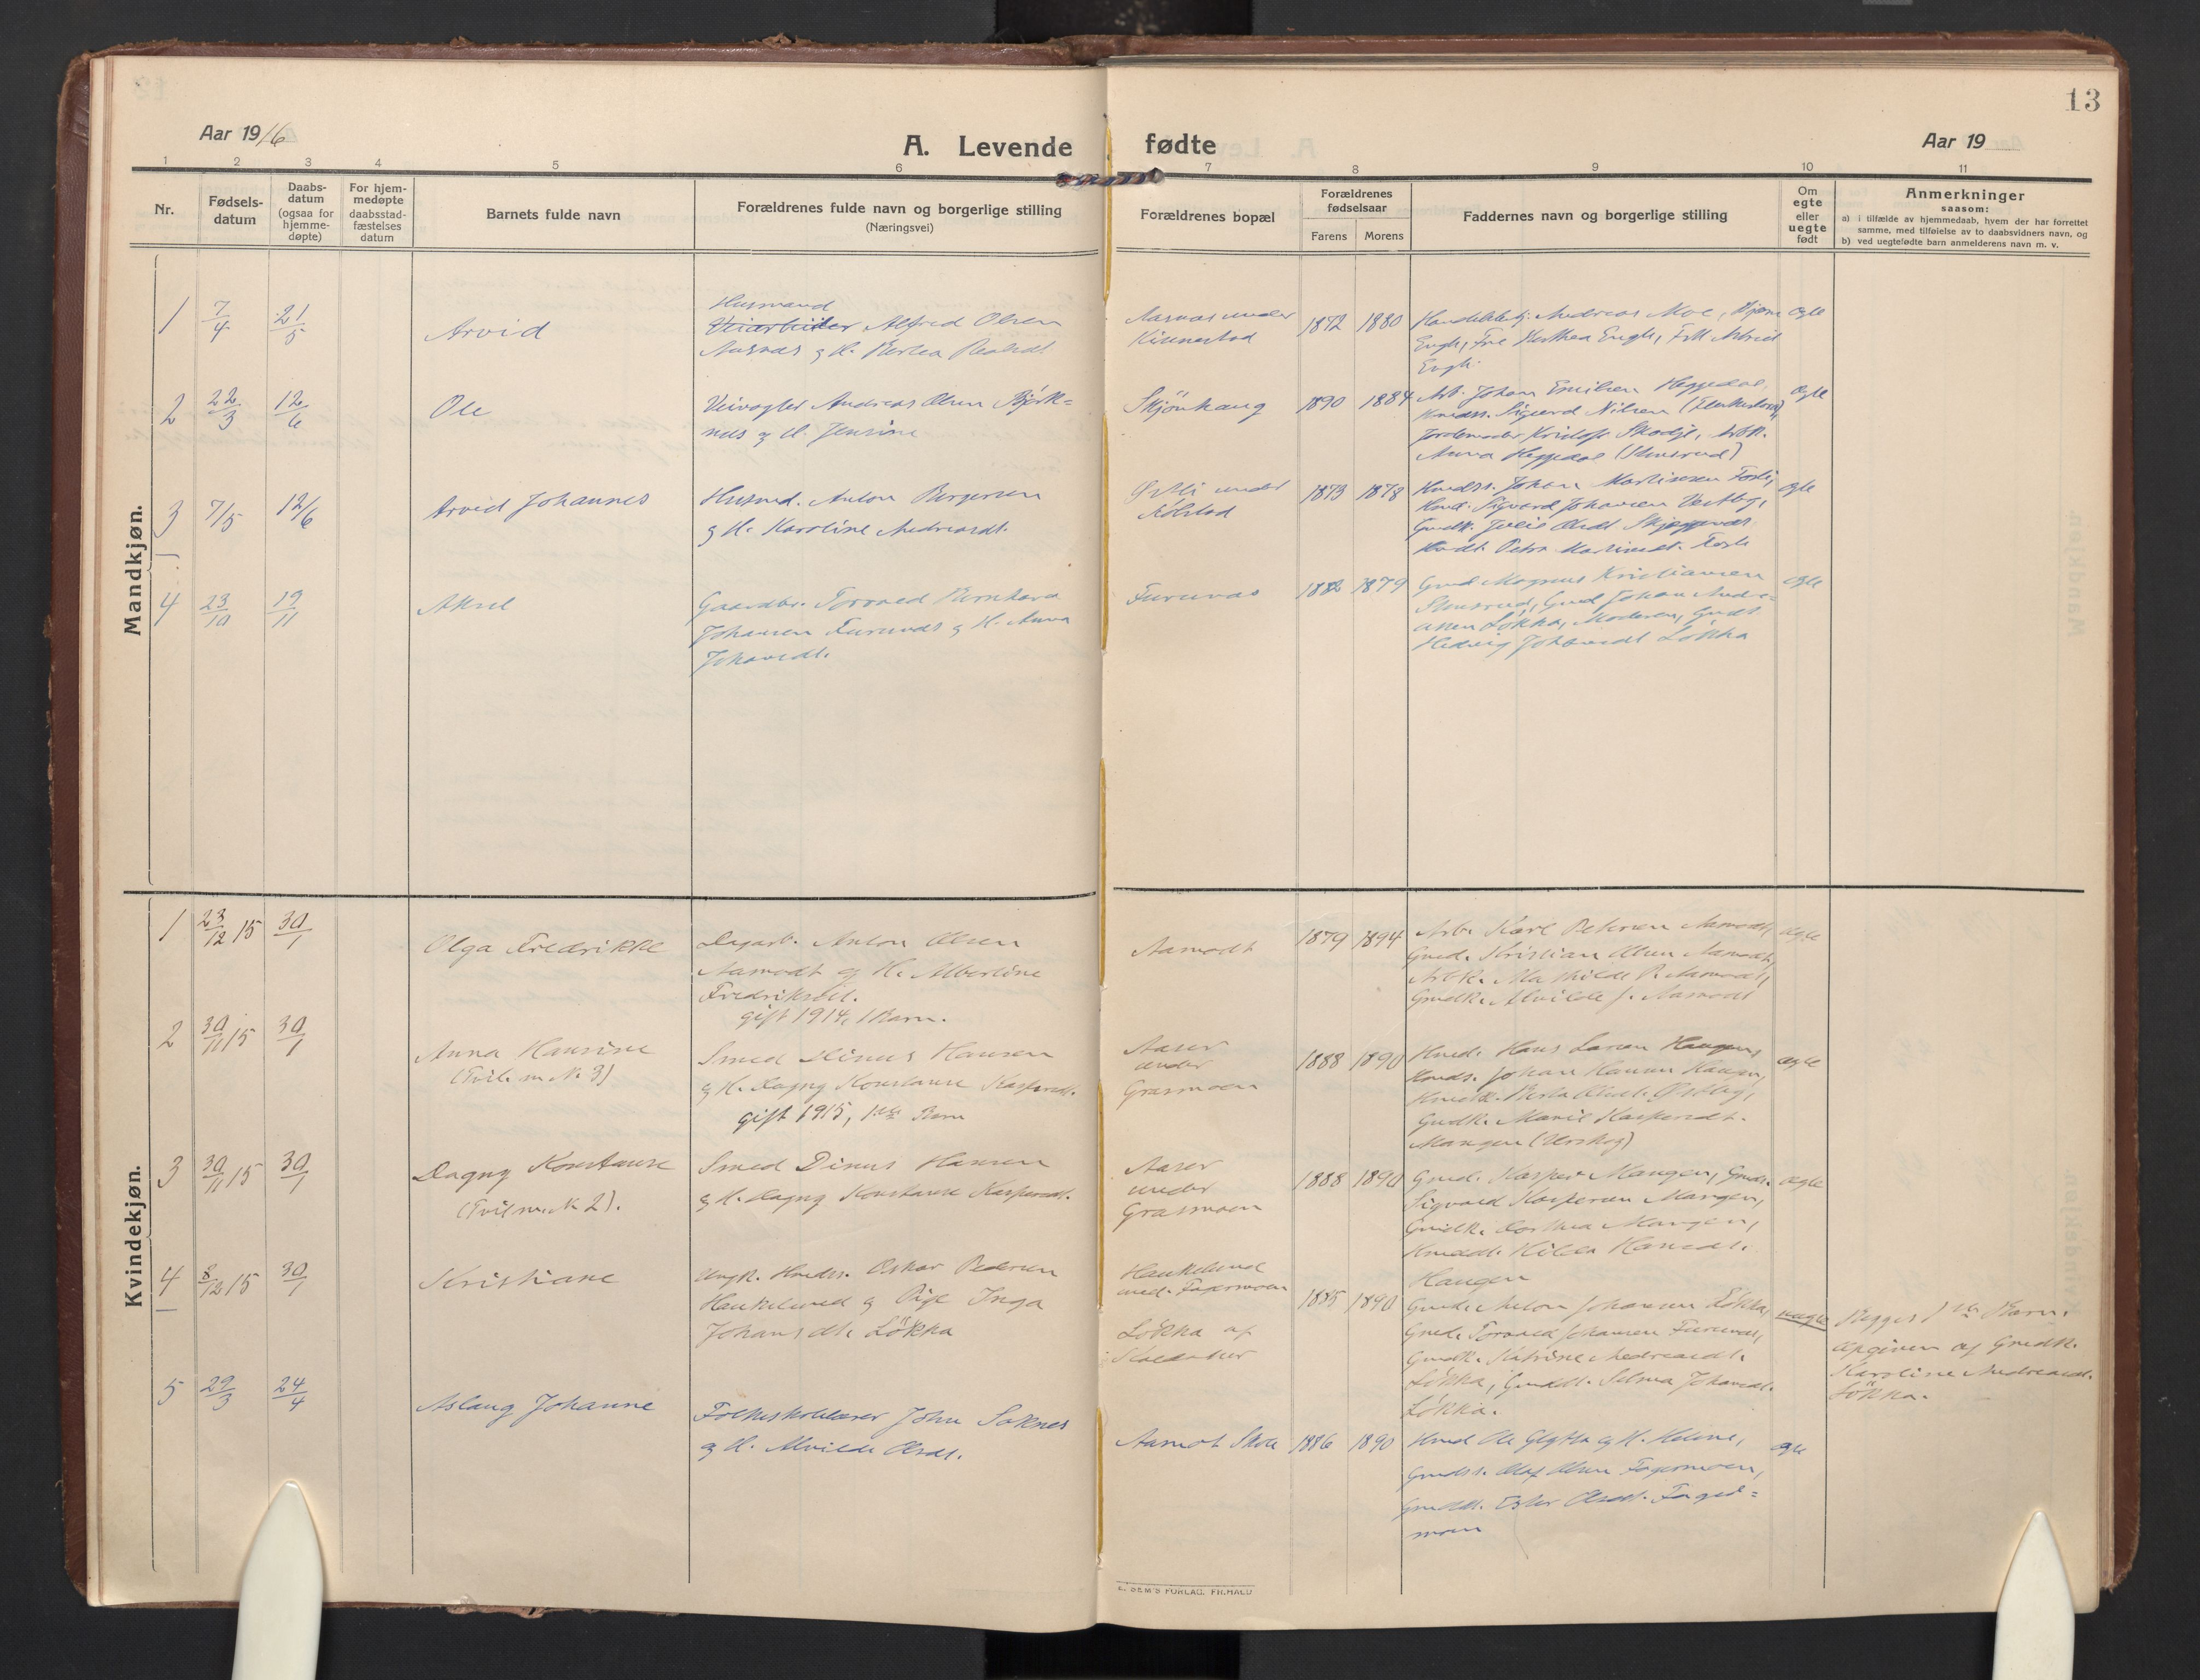 13
Aar 1916
A. Levende fødte
Aar 19
1 2 3 4 5 6 7 8 9 10 11
Nr.
Fødsels-
datum
Daabs-
datum
(ogsaa for
hjemme-
døpte)
For hjem-
medøpte
daabsstad-
fæstelses
datum
Barnets fulde navn
Forældrenes fulde navn og borgerlige stilling
(Næringsvei)
Forældrenes bopæl
Forældrenes
fødselsaar
Farens Morens
Faddernes navn og borgerlige stilling
Om
egte
eller
uegte
født
Anmerkninger
saasom:
a) i tilfælde av hjemmedaab, hvem der har forrettet
samme, med tilføielse av to daabsvidners navn, og
b) ved uegtefødte barn anmelderens navn m. v.
Mandkjøn.
1 7/4 21/5
Arvid
Husmand
Veiarbeider Alfred Olsen
Aasnes g H. Bertea
Aasnas under
Kinnestad
1872 1880
Andreas Moe, Bjarne
Engh, Frk Astrid
Engh.
egte
2 22/3 12/6
Ole
Veivogter Andreas Olsen Bjørk=
nes g H. Jensine
Skjønhaug
1890 1884
Arb. Johan Emilsen Heggedal,
Sigurd Nilsen
Jordemoder Skodje, Arbk.
Anna Heggedal
egte
3 7/5 12/6
Arvid Johannes
Husmd. Anton Bergersen
g H. Karoline Andreasdt.
under
Kolstad
1873 1878
Johan Martinsen
Sigvard Johansen
Gmdk. Julie Olsdt.
Petra Martinsdt.
egte
4 23/10 19/11
Aksel
Gaardbr. Torvald Bernhard
Johansen Furunes g H. Anna
Johansdt.
Furunes
1882 1879
Gmd Magnus Kristiansen
Gmd Johan Andre=
assen Løkka, Moderen, Gmdt.
Hedvig Johansdt Løkka
egte
Kvindekjøn.
1 23/12 15 30/1
Olga Fredrikke
Dagarb. Anton Olsen
Aamodt g H. Albertine
Fredriksdt.
gift 1914, 1 Barn.
Aamodt
1879 1894
Arb. Karl Petersen Aamodt,
Gmd. Kristian Olsen Aamodt,
Arbk. Mathilde P. Aamodt,
Gmdk. Alvilde J. Aamodt
egte
2 30/11 15 30/1
Anna Hansine
(Tvil. m. N. 3)
Smed Dinus Hansen
g H. Dagny Konstanse Kaspersdt.
gift 1915, 1ste Barn
Aaser
under
Grasmoen
1888 1890
Hmd. Hans Larsen Haugen,
Hmds. Johan Hansen Haugen,
Berta Olsdt.
Gmdk. Marie Kaspersdt.
Mangen (Urskog)
egte
3 30/11 15 30/1
Dagny Konstanse
(Tvil m. N 2).
Smed Dinus Hansen
g H. Dagny Konstanse Kaspersdt.
Aaser
under
Grasmoen
1888 1890
Gmd. Kasper Mangen, Gmds.
Sigvald Kaspersen Mangen,
Gmdk. Dorthea Mangen,
Hmddt. Hilda Hansdt.
Haugen
egte
4 8/12 15 30/1
Kristiane
Ungk. Hmds. Oskar Pedersen
Haukelund g Pige Inga
Johansdt. Løkka
Haukelund
und. Fagermoen
Løkka af
1885 1890
Gmd. Anton Johansen Løkka,
Gmd. Torvald Johansen Furunes,
Gmdk. Katrine Andreasdt.
Løkka, Gmddt. Selma Johansdt.
Løkka.
uegte
Begges 1ste Barn.
Opgiven af Gmdk.
Karoline Andreasdt.
Løkka.
5 29/3 24/4
Aslaug Johanne
Folkeskolelærer John Saknes
g H. Alvilde Olsdt.
Aamot Skole
1886 1890
Hmd Ole g H. Helene,
Gmds. Olaf Olsen Fagermoen,
Gmddt. Ester Olsdt. Fager=
moen
egte
E. SEM'S FORLAG. FR.HALD